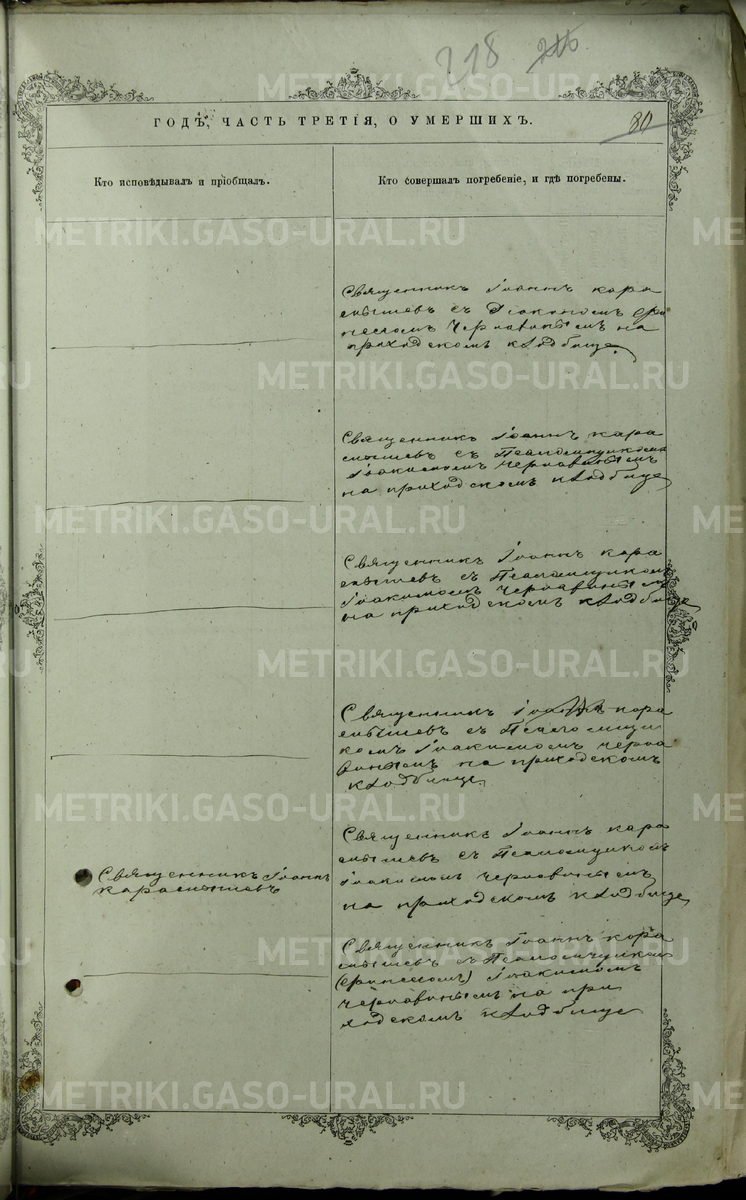 218
ГОДЪ, ЧАСТЬ ТРЕТІЯ, О УМЕРШИХЪ.
80
Кто исповѣдывалъ и пріобщалъ.
Кто совершалъ погребеніе, и гдѣ погребены.
Священникъ Іоаннъ Кара
мышевъ съ Діакономъ
на
приходскомъ кладбище
Священникъ Іоаннъ Кара
мышевъ съ Псаломщикомъ
Іоакимомъ Чернавинымъ
на приходскомъ кладбище
Священникъ Іоаннъ Кара
мышевъ съ Псаломщикомъ
Іоакимомъ Чернавинымъ
на приходскомъ кладбище
Священникъ Іоаннъ Кара
мышевъ съ Псаломщи
комъ Іоакимомъ Черна
винымъ на приходскомъ
кладбище
Священникъ Іоаннъ
Карамышевъ
Священникъ Іоаннъ Кара
мышевъ съ Псаломщикомъ
Іоакимомъ Чернавинымъ
на приходскомъ кладбище
Священникъ Іоаннъ Кара
мышевъ съ Псаломщикомъ
Іоакимомъ
Чернавинымъ на при
ходскомъ кладбище
METRIKI.GASO-URAL.RU